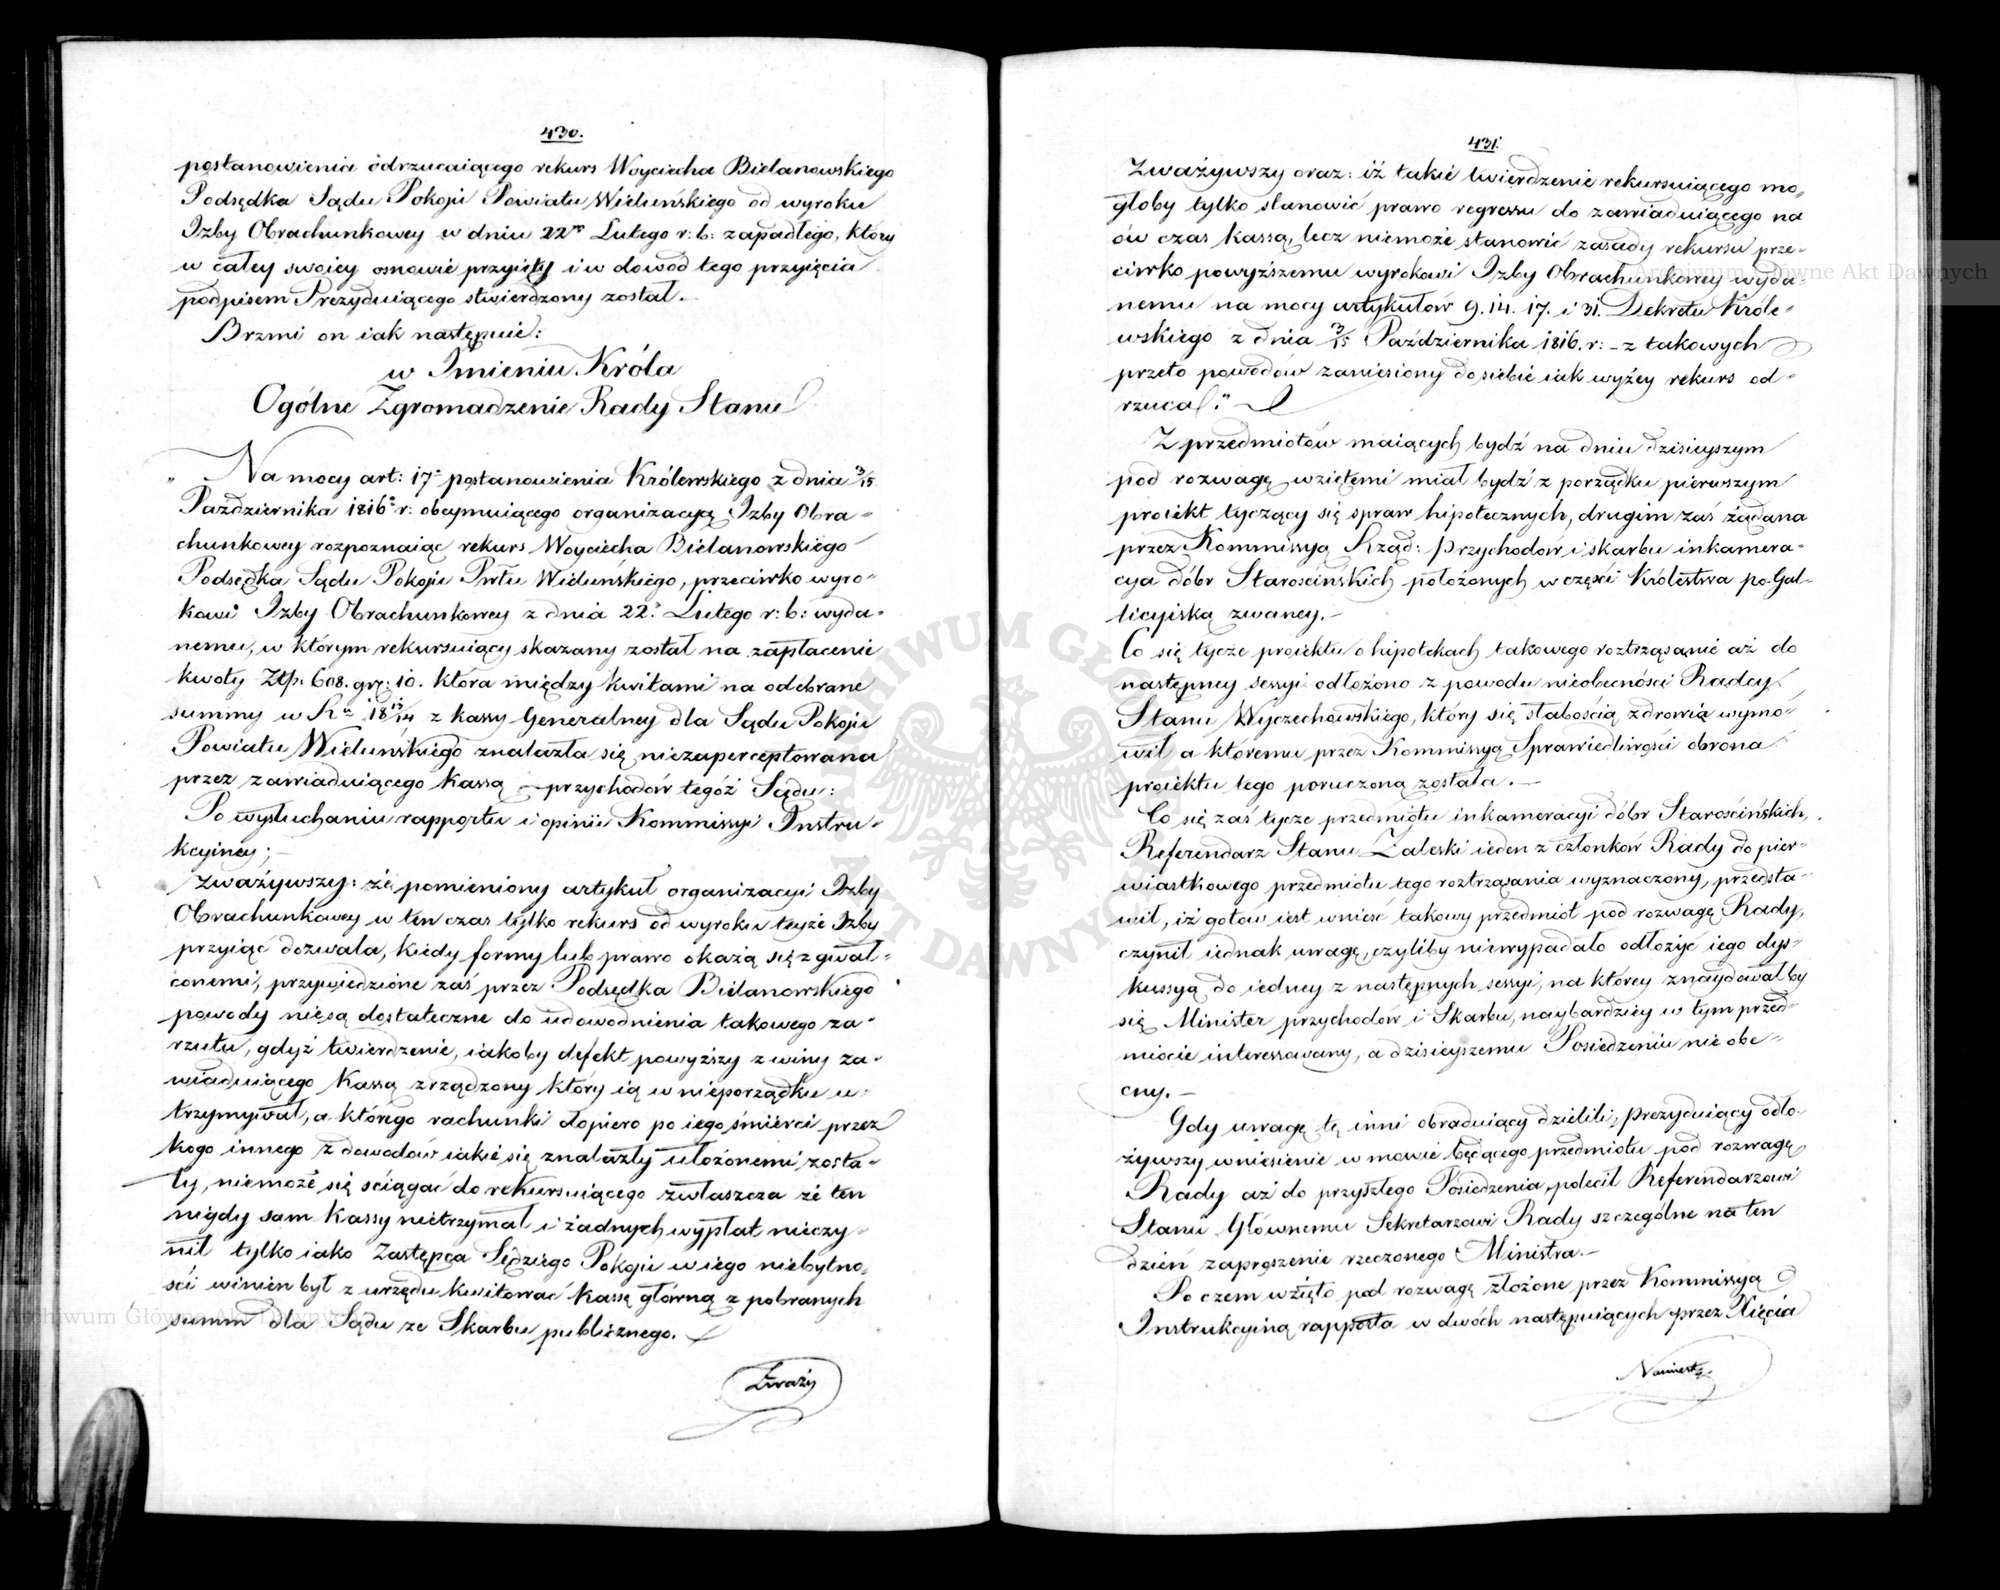 430.
postanowienia odrzucaiącego rekurs Woyciecha Bielanowskiego
Podsędka Sądu Pokoju Powiatu Wieluńskiego od wyroku
Izby Obrachunkowey w dniu 22go Lutego r: b: zapadłego, który
w całey swoiey osnowie przyięty i w dowód tego przyięcia
podpisem Prezyduiącego stwierdzony został.
Brzmi on iak następuie:
w Imieniu Króla
Ogólne Zgromadzenie Rady Stanu
„ Na mocy art: 17o postanowienia Królewskiego z dnia 3/15
Października 1816o r: obeymuiącego organizacyą Izby Obra=
chunkowey rozpoznaiąc rekurs Woyciecha Bielanowskiego
Podsędka Sądu Pokoju Pwtu Wieluńskiego, przeciwko wyro=
kowi Izby Obrachunkowey z dnia 22o Lutego r: b: wyda=
nemu, w którym rekursuiący skazany został na zapłacenie
kwoty Złp. 608. gr: 10. która między kwitami na odebrane
summy w Ru 1813/14 z kassy Generalney dla Sądu Pokoju
Powiatu Wieluńskiego znalazła się niezaperceptowana
przez zawiaduiącego Kassą przychodów tegóż Sądu:
Po wysłuchaniu rapportu i opinii Kommissyi Instru=
kcyiney;
Zważywszy: że pomieniony artykuł organizacyi Izby
Obrachunkowey w ten czas tylko rekurs od wyroku teyże Izby
przyiąć dozwala, kiedy formy lub prawo okażą się zgwał=
conemi; przywiedzione zaś przez Podsędka Bielanowskiego
powody niesą dostateczne do udowodnienia takowego za=
rzutu, gdyż twierdzenie, iakoby defekt powyższy z winy za=
wiaduiącego Kassą zrządzony który ią w nieporządku u=
trzymywał, a którego rachunki dopiero po iego śmierci przez
kogo innego z dowodów iakie się znalazły ułożonemi zosta=
ły, niemoże się ściągać do rekursuiącego zwłaszcza że ten
nigdy sam Kassy nietrzymał i żadnych wypłat nieczy=
nił tylko iako Zastępca Sędziego Pokoju w iego niebytno=
ści winien był z urzędu kwitować Kassę główną z pobranych
summ dla Sądu ze Skarbu publicznego.
Zważy
431.
Zważywszy oraz: iż takie twierdzenie rekursuiącego mo=
głoby tylko stanowić prawo regressu do zawiaduiącego na
ów czas Kassą, lecz niemoże stanowić zasady rekursu prze=
ciwko powyższemu wyrokowi Izby Obrachunkowey wyda=
nemu na mocy artykułów 9. 14. 17. i 31. Dekretu Króle=
wskiego z dnia 3/15 Października 1816. r: - z takowych
przeto powodów zaniesiony do siebie iak wyżey rekurs od=
rzuca."
Z przedmiotów maiących bydź na dniu dzisieyszym
pod rozwagę wziętemi miał bydź z porządku pierwszym
proiekt tyczący się spraw hipotecznych, drugim zaś żądana
przez Kommissyą Rząd: Przychodów i skarbu inkamera=
cya dóbr Starościńskich położonych w części Królestwa po-Gal=
licyiską zwaney.-
Co się tycze proiektu o hipotekach takowego roztrząsanie aż do
następney sessyi odłożono z powodu nieobecności Radcy
Stanu Wyczechowskiego, który się słabością zdrowia wymó=
wił a któremu przez Kommissyą Sprawiedliwości obrona
proiektu tego poruczona została. -
Co się zaś tycze przedmiotu inkameracyi dóbr Starościńskich,
Referendarz Stanu Zaleski ieden z członków Rady do pier=
wiastkowego przedmiotu tego roztrząsania wyznaczony, przedsta=
wił, iż gotów iest wnieść takowy przedmiot pod rozwagę Rady,
czynił iednak uwagę, czyliby niewypadało odłożyć iego dys=
kussyą do iedney z następnych sessyi, na którey znaydowałby
się Minister przychodów i Skarbu, naybardziey w tym przed=
miocie interessowany, a dzisieyszemu Posiedzeniu nie obe=
cny. -
Gdy uwagę tę inni obraduiący dzielili, Prezyduiący odło=
żywszy wniesienie w mowie będącego przedmiotu pod rozwagę
Rady aż do przyszłego Posiedzenia, polecił Referendarzowi
Stanu Głównemu Sekretarzowi Rady szczególne na ten
dzień zaproszenie rzeczonego Ministra.-
Po czem wzięto pod rozwagę złożone przez Kommissyą
Instrukcyiną rapporta w dwóch następuiących przez Xięcia
Namiest
Archiwum Główne Akt Dawnych
Archiwum Główne Akt Dawnych
ARCHIWUM GŁÓWNE AKT DAWNYCH